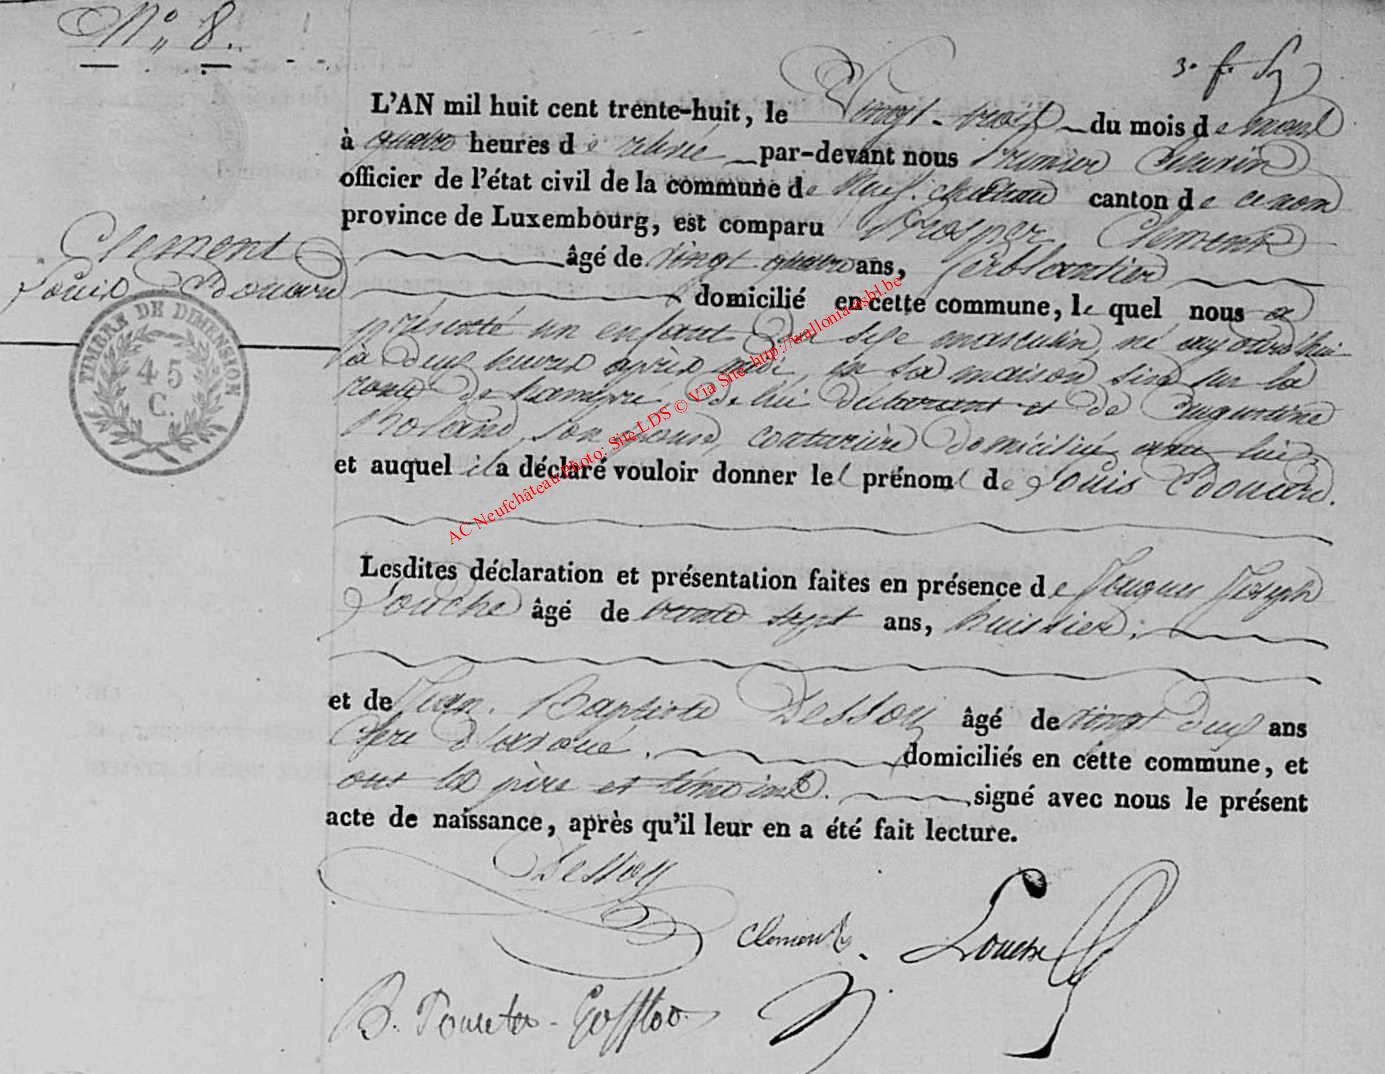 N° 8.
3. f.
L'AN mil huit cent trente-huit, le Vingt-trois du mois de
à quatre heures de relevée par-devant nous Premier Echevin
officier de l'état civil de la commune de Neufchateau canton de ce nom
province de Luxembourg, est comparu Prosper Clement
Clement
Louis Edouard
âgé de vingt quatre ans, ferblantier
domicilié en cette commune, le quel nous a
présenté un enfant du sexe masculin, né aujourd'hui
à deux heures après midi, en sa maison sise sur la
route de hamipré, de lui déclarant et de Augustine
Roland, son épouse, couturière domiciliée avec lui
et auquel il a déclaré vouloir donner les prénoms de Louis Edouard.
TIMBRE DE DIMENSION
45
C.
Lesdites déclaration et présentation faites en présence de Jacques Joseph
Louche âgé de trente sept ans, huissier;
et de Jean Baptiste Dessoy âgé de vingt deux ans
Clerc d'avoué. domiciliés en cette commune, et
ont les père et témoins. signé avec nous le présent
acte de naissance, après qu'il leur en a été fait lecture.
Dessoy
Clement
Louche
AC Neufchâteau Photo: Site LDS © Via Site http://wallonia-asbl.be